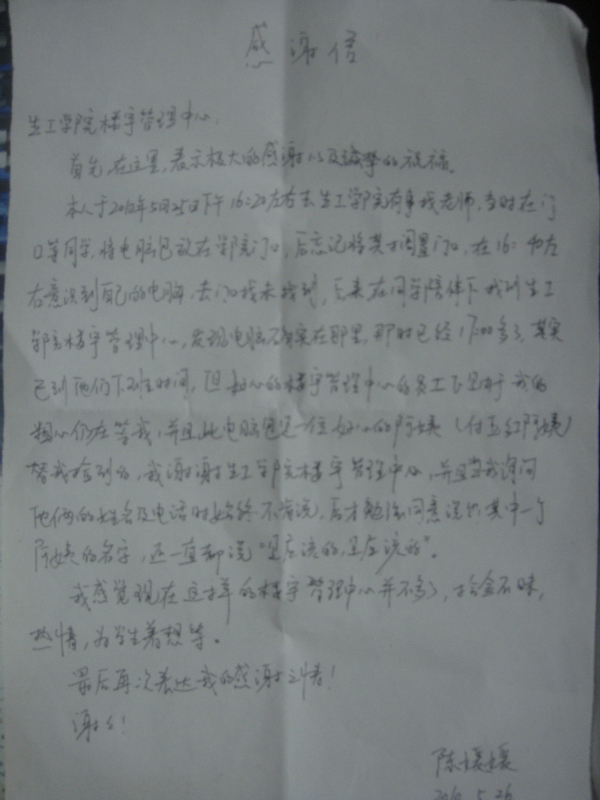 感谢信
生工学院楼宇管理中心,
首先,在这里,表示极大的感谢以及诚挚的祝福。
本人于2010年5月25日下午16:20左右去生工学院有事找老师,当时在门
口等同学,将电脑包放在学院门口,后忘记将其搁置门口,在16:40左
右意识到自己的电脑,去门口找未找到,后来在同学陪伴下找到生工
学院楼宇管理中心,发现电脑确实在那里,那时已经17:00多了,其实
已到他们下班时间,但好心的楼宇管理中心的员工正由于我的
粗心仍在等我,并且此电脑包是一位好心的阿姨(付玉红阿姨)
替我捡到的,我谢谢生工学院楼宇管理中心,并且当我询问
他们的姓名及电话时始终不肯说,后才勉强同意说出其中一个
阿姨的名字,还一直都说"是应该的,是应该的"。
我感觉现在这样的楼宇管理中心并不多了,拾金不昧,
热情,为学生着想等。
最后再次表达我的感谢之情!
谢谢!
陈
2010.5.26